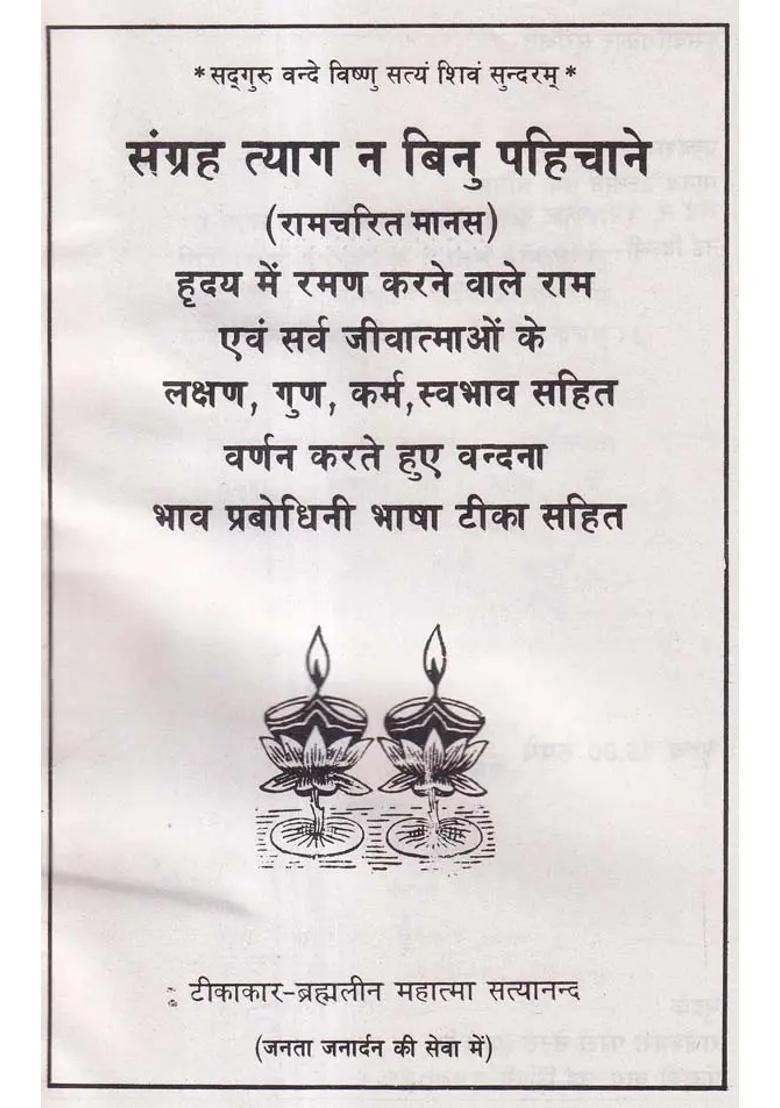 *सद्‌गुरु वन्दे विष्णु सत्यं शिवं सुन्दरम्*
संग्रह त्याग न बिनु पहिचाने
(रामचरित मानस)
हृदय में रमण करने वाले राम
एवं सर्व जीवात्माओं के
लक्षण, गुण, कर्म,स्वभाव सहित
वर्णन करते हुए वन्दना
भाव प्रबोधिनी भाषा टीका सहित
टीकाकार-ब्रह्मलीन महात्मा सत्यानन्द
(जनता जनार्दन की सेवा में)